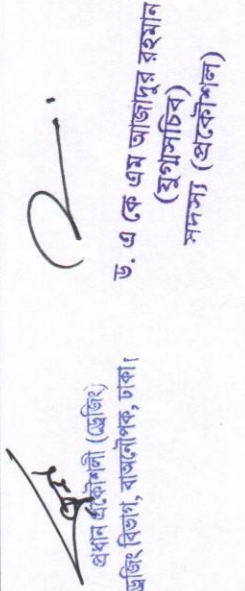 প্রধান প্রকৌশলী (ড্রেজিং)
ড্রেজিং বিভাগ, বাঅনৌপক, ঢাকা।
ড. এ কে এম আজাদুর রহমান
(যুগ্মসচিব)
সদস্য (প্রকৌশল)